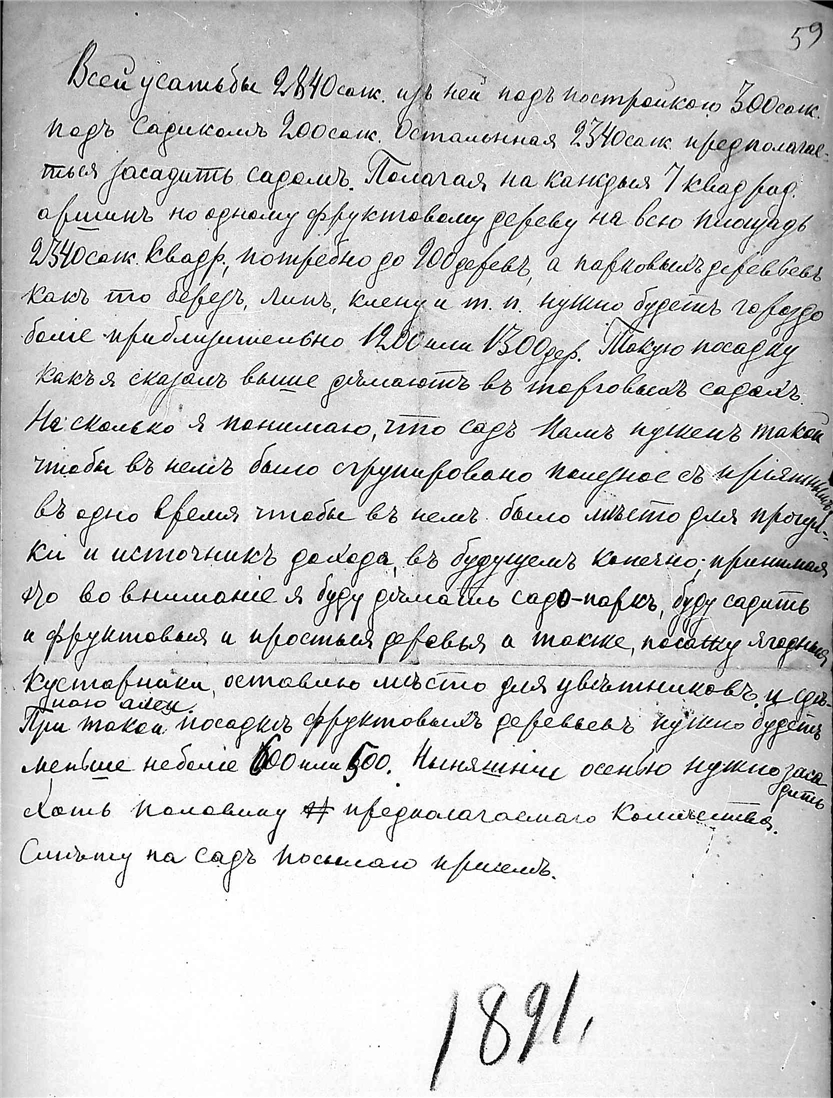 59
Всей усатьбы 2840 саж. изъ ней подъ постройкою 300 саж.
подъ садикомъ 200 саж. Остальная 2340 саж предполагае-
ться засадить садомъ. Полагая на каждыя 7 квад рад.
аршинъ по одному фруктовому дереву на всю площадь
2340 саж. квадр, потребно до 900 деревъ, а парковыхъ деревьевъ
какъ то березъ, липъ, клену и т. п. нужно будетъ гораздо
боліе приблизительно 1200 или 1300 дер. Такую посадку
какъ я сказалъ выше дѣлаютъ въ торговыхъ садахъ.
На сколько я понимаю, что садъ Вамъ нуженъ такой
чтобы въ немъ было сгрупировано полезное съ пріятнымъ,
въ одно время чтобы въ немъ было мѣсто для прогул-
ки и источникъ дохода, въ будущемъ конечно; принимая
это во вниманіе я буду дѣлать садо-паркъ, буду садить
и фруктовыя и простыя деревья а также, посажу ягодныя
кустарники, оставлю мѣсто для цвѣтниковъ, и сдѣ-
лаю алеи.
При такой посадкѣ фруктовыхъ деревьевъ нужно будетъ
меньше неболіе 600 или 500. Ныняшніи осенью нужно заса
дить
хоть половину предполагаемаго количества.
Смѣту на садъ посылаю при семъ.
1891.